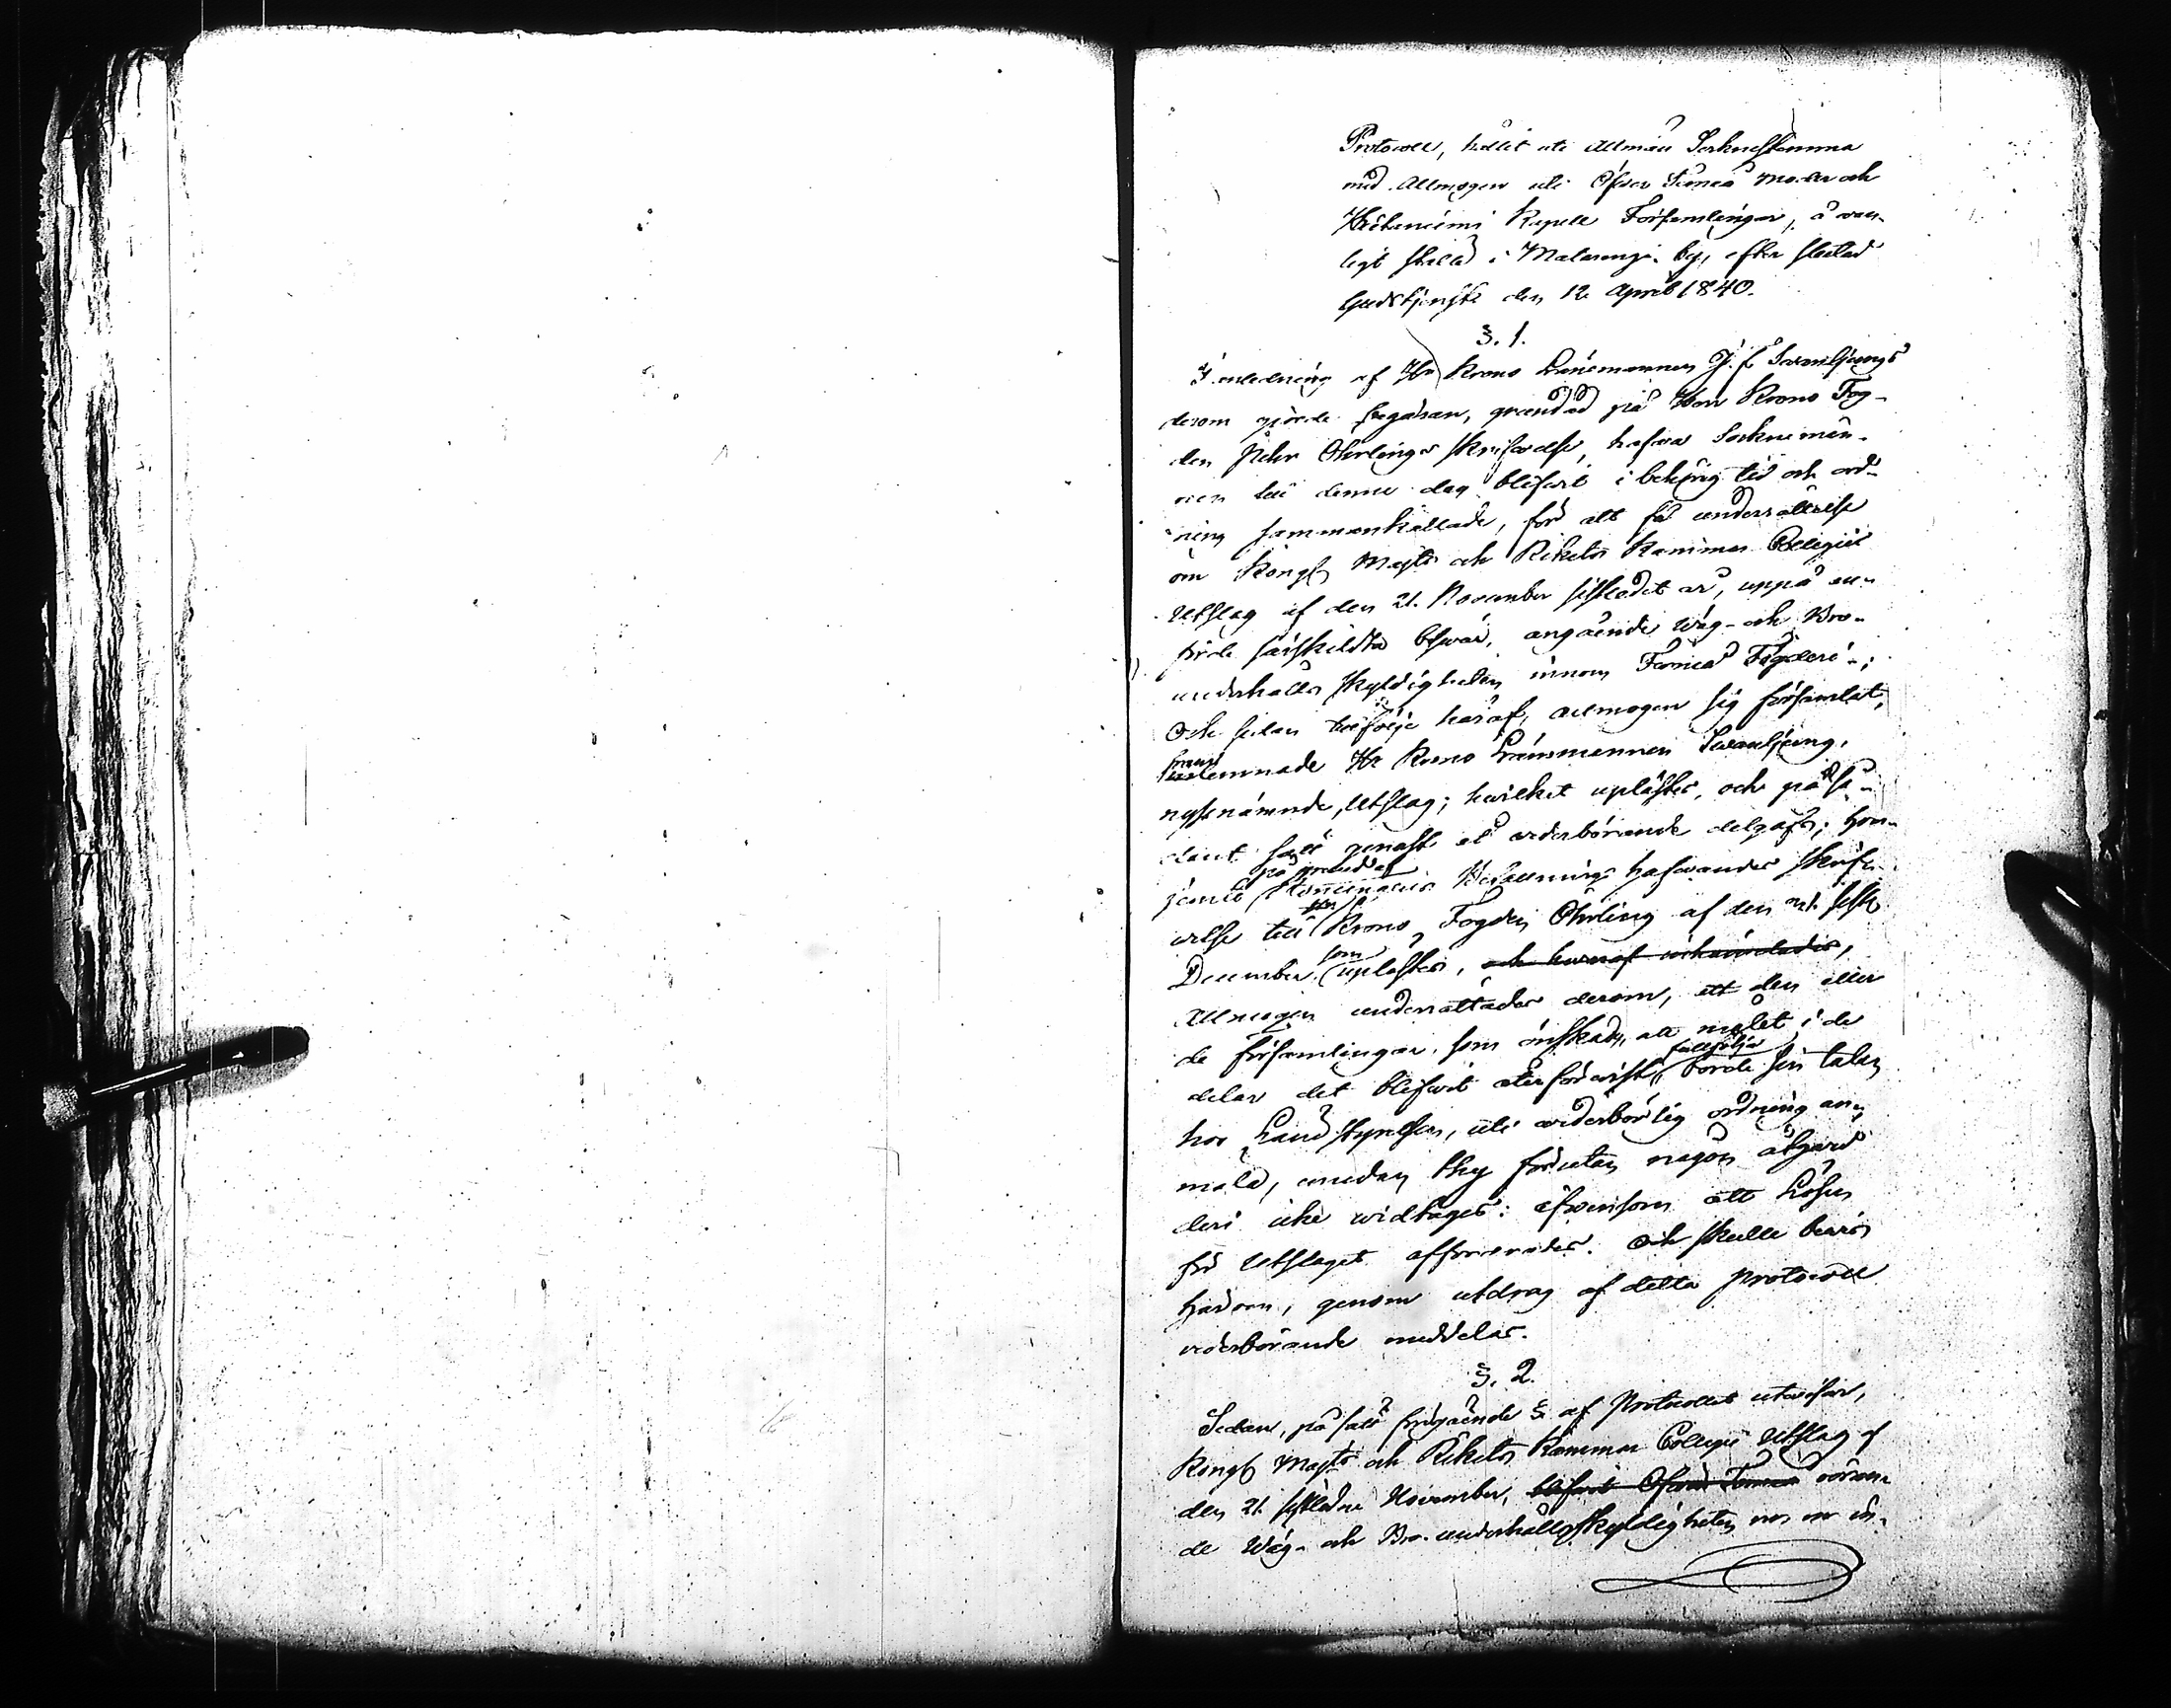 Protocoll, hållit uti allmän Sockenstämma
med Allmogen uti Öfver Torneå Moder och
Hietaniemi Kapell Församlingar, å van-
ligt ställe i Matarengi by, efter slutad
Gudstjenst den 12 April 1840.
§. 1.
I anledning af Hr Krono Länsmannen J. F. Svanljungs
derom gjorde begäran, grundad på Herr Krono Fog-
den Pehr Öhrlings skrifvelse, hafva Sockenmän-
nen till denne dag blifvit i behörig tid och ord-
ning sammankallade, för att få underrättelse
om Kongl Majts och Rikets Kammar Collegii
Utslag af den 21. November sistledit år, uppå an-
förde särskildta besvär, angående Väg- och Bro-
underhålls skyldigheten innom Torneå Fögderi;
Och sedan tillfölje häraf, allmogen sig församlat,
fram
lemnade Hr Krono Länsmannen Svanljung,
nyssnämnde Utslag; hvilket uplästes, och på så-
dant sätt genast åt vederbörande delgafs; hvar-
på grund af
jemte Konungens Befallnings hafvandes skrif-
Hr
velse till Krono Fogden Öhrling af den sistl
som
December uplästes, och
Allmogen underrättades derom, att den eller
de församlingar, som önskade, att målet i de
fullfölja
delar det blifvit återförvist, borde sin talan
hos Landstyrelsen, uti vederbörlig ordning an-
mäla, emedan thy förutan någon åtgärd
deri icke vidtages: äfvensom att Lösen
för Utslaget affordrades. Och skulle bevis
härom, genom utdrag af detta protocoll
vederbörande meddelas.
§. 2.
Sedan, på sätt föregående § af Protocollet utvisar,
Kongl Majts och Rikets Kammar Collegii Utslag af
den 21. sistledne November, blifvit Öfver Torneå röran-
de Väg- och Bro-underhållsskyldigheten